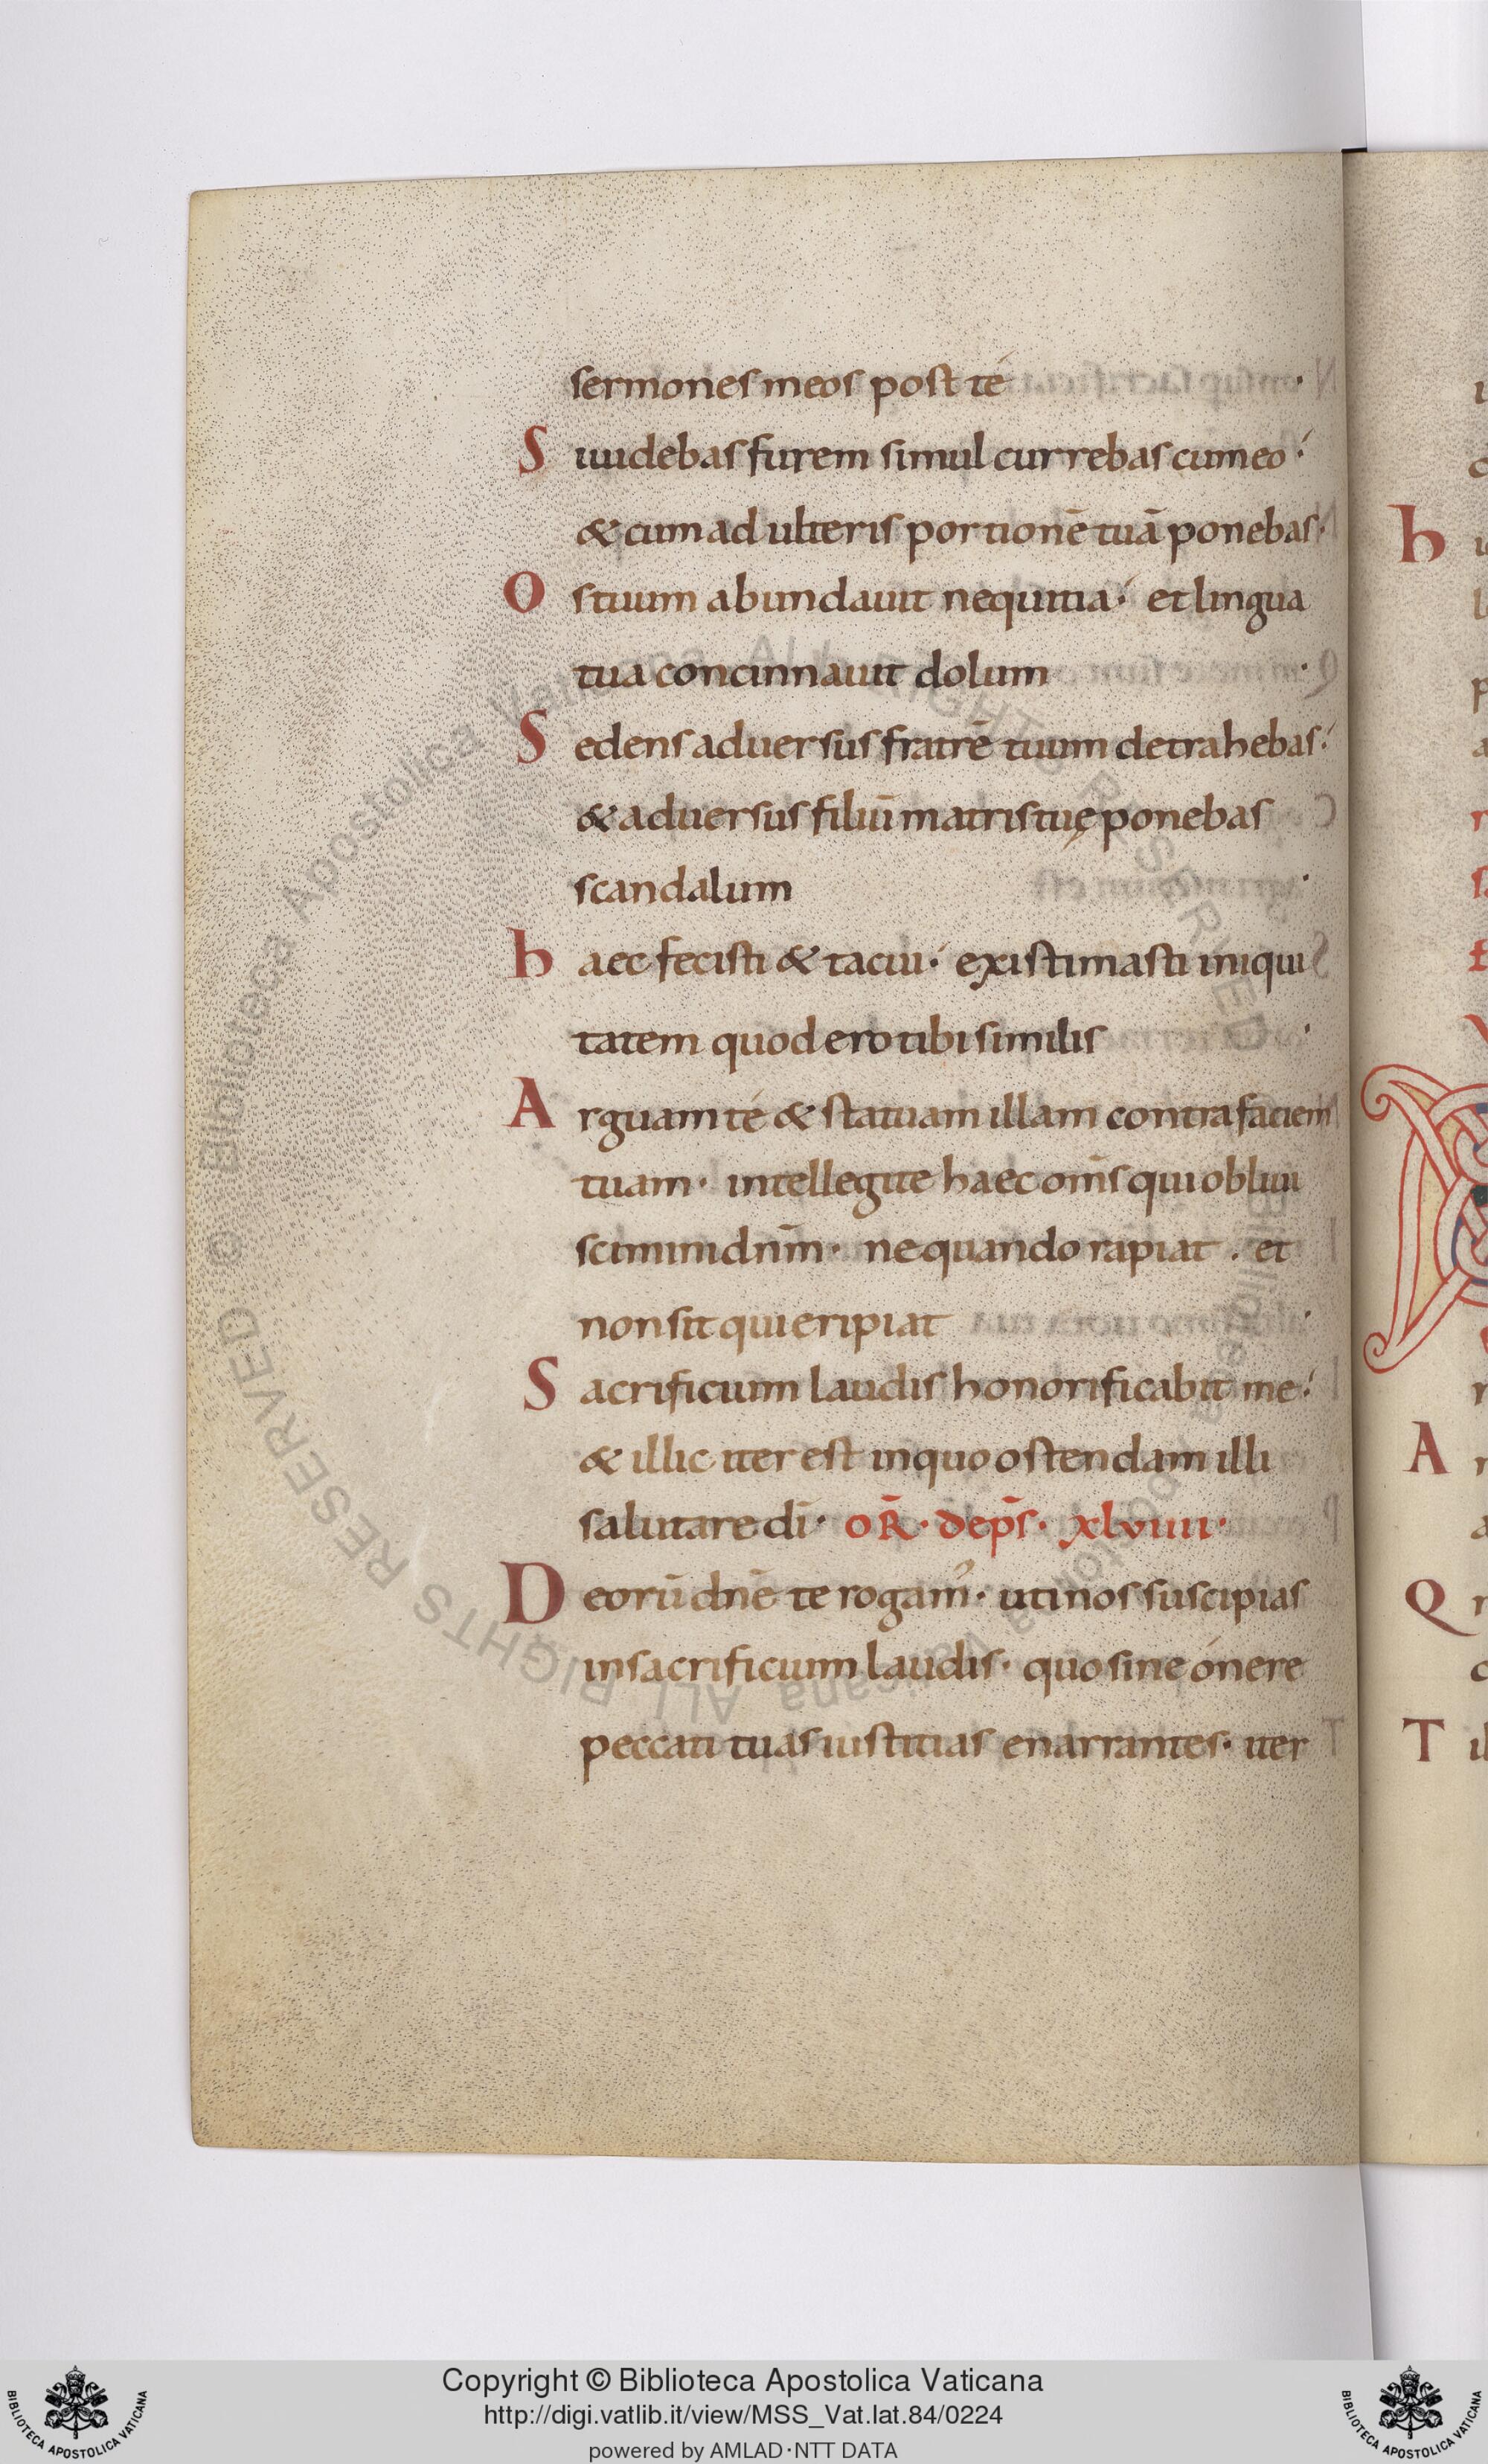 sermones meos post té ·
S uidebas furem simul currebas cum eo ·
& cum adulteris portionē tuā ponebas ·
O s tuum abundauit nequitia · et lingua
tua concinnauit dolum ·
S edens aduersus fratrē tuum detrahebas ·
& aduersus filiū matris tuę ponebas
scandalum ·
h aec fecisti & tacui · existimasti iniqui
tatem quod ero tibi similis ·
A rguam té & statuam illam contra faciem
tuam · intellegite haec om̄s qui obliui
scimini dn̄m · ne quando rapiat . et
non sit qui eripiat ·
S acrificium laudis honorificabit me ·
& illic iter est in quo ostendam illi
salutare dī · OR̄ · de ps̄ · xlviiii ·
D eorū dn̄e te rogam' · uti nos suscipias
in sacrificium laudis · quo sine ónere
peccati tuas iustitias enarrantes · iter
h
A
Q
T
© Biblioteca Apostolica Vaticana ALL RIGHTS RESERVED
© Biblioteca Apostolica Vaticana ALL RIGHTS RESERVED
Copyright © Biblioteca Apostolica Vaticana
http://digi.vatlib.it/view/MSS_Vat.lat.84/0224
powered by AMLAD·NTT DATA
BIBLIOTECA APOSTOLICA VATICANA
BIBLIOTECA APOSTOLICA VATICANA